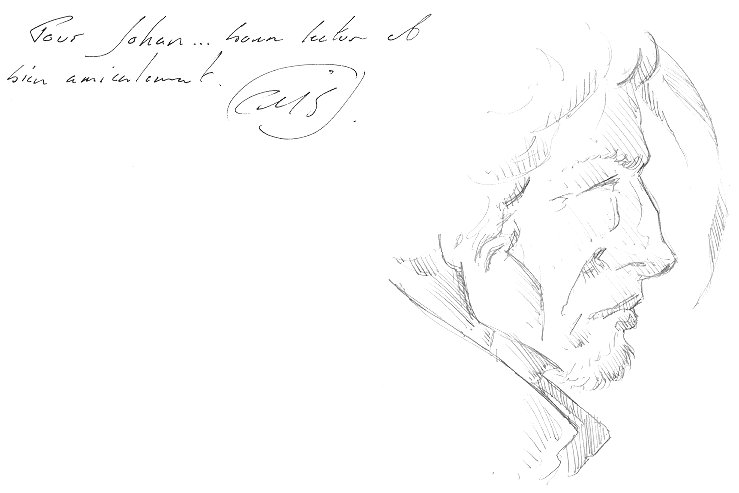 Pour Johan... bonne lecture et
bien amicalement.